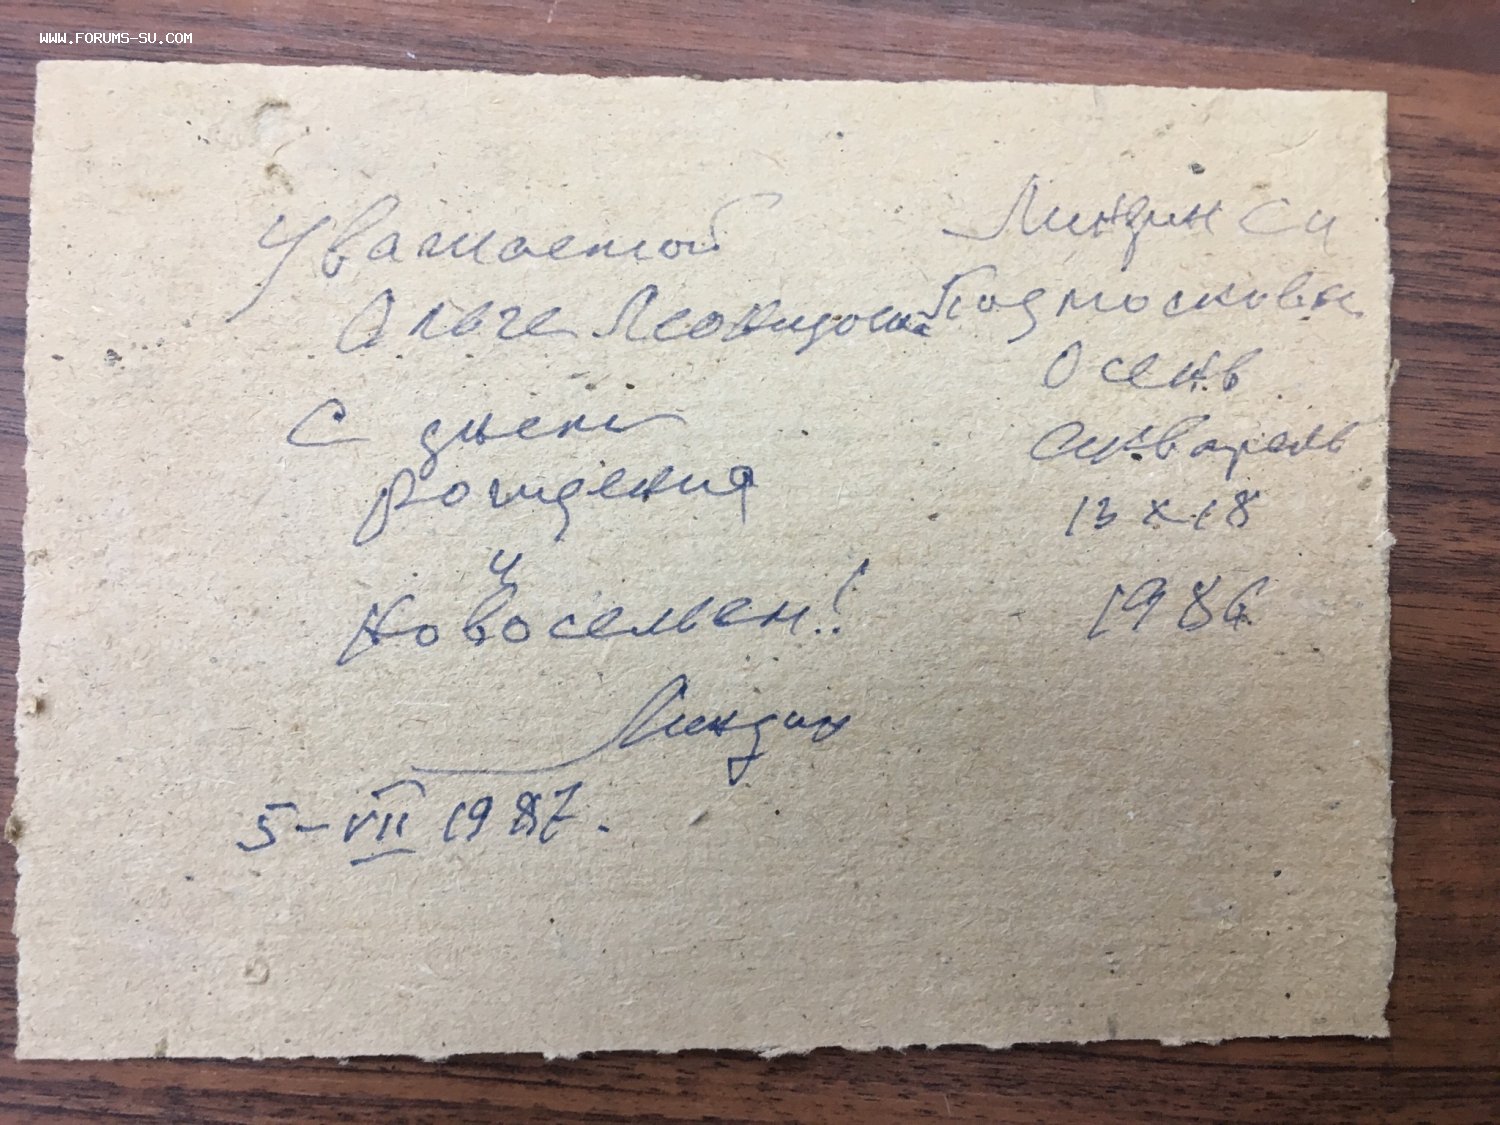 WWW.FORUMS-SU.COM
Уважаемой
Ольге Леонидовне
С днем
рождения
и
Новосельем!
Линдин
5-VII 1987.
Линдин СИ
Подмосковн
Осень
Акварель
13 х 18
1986